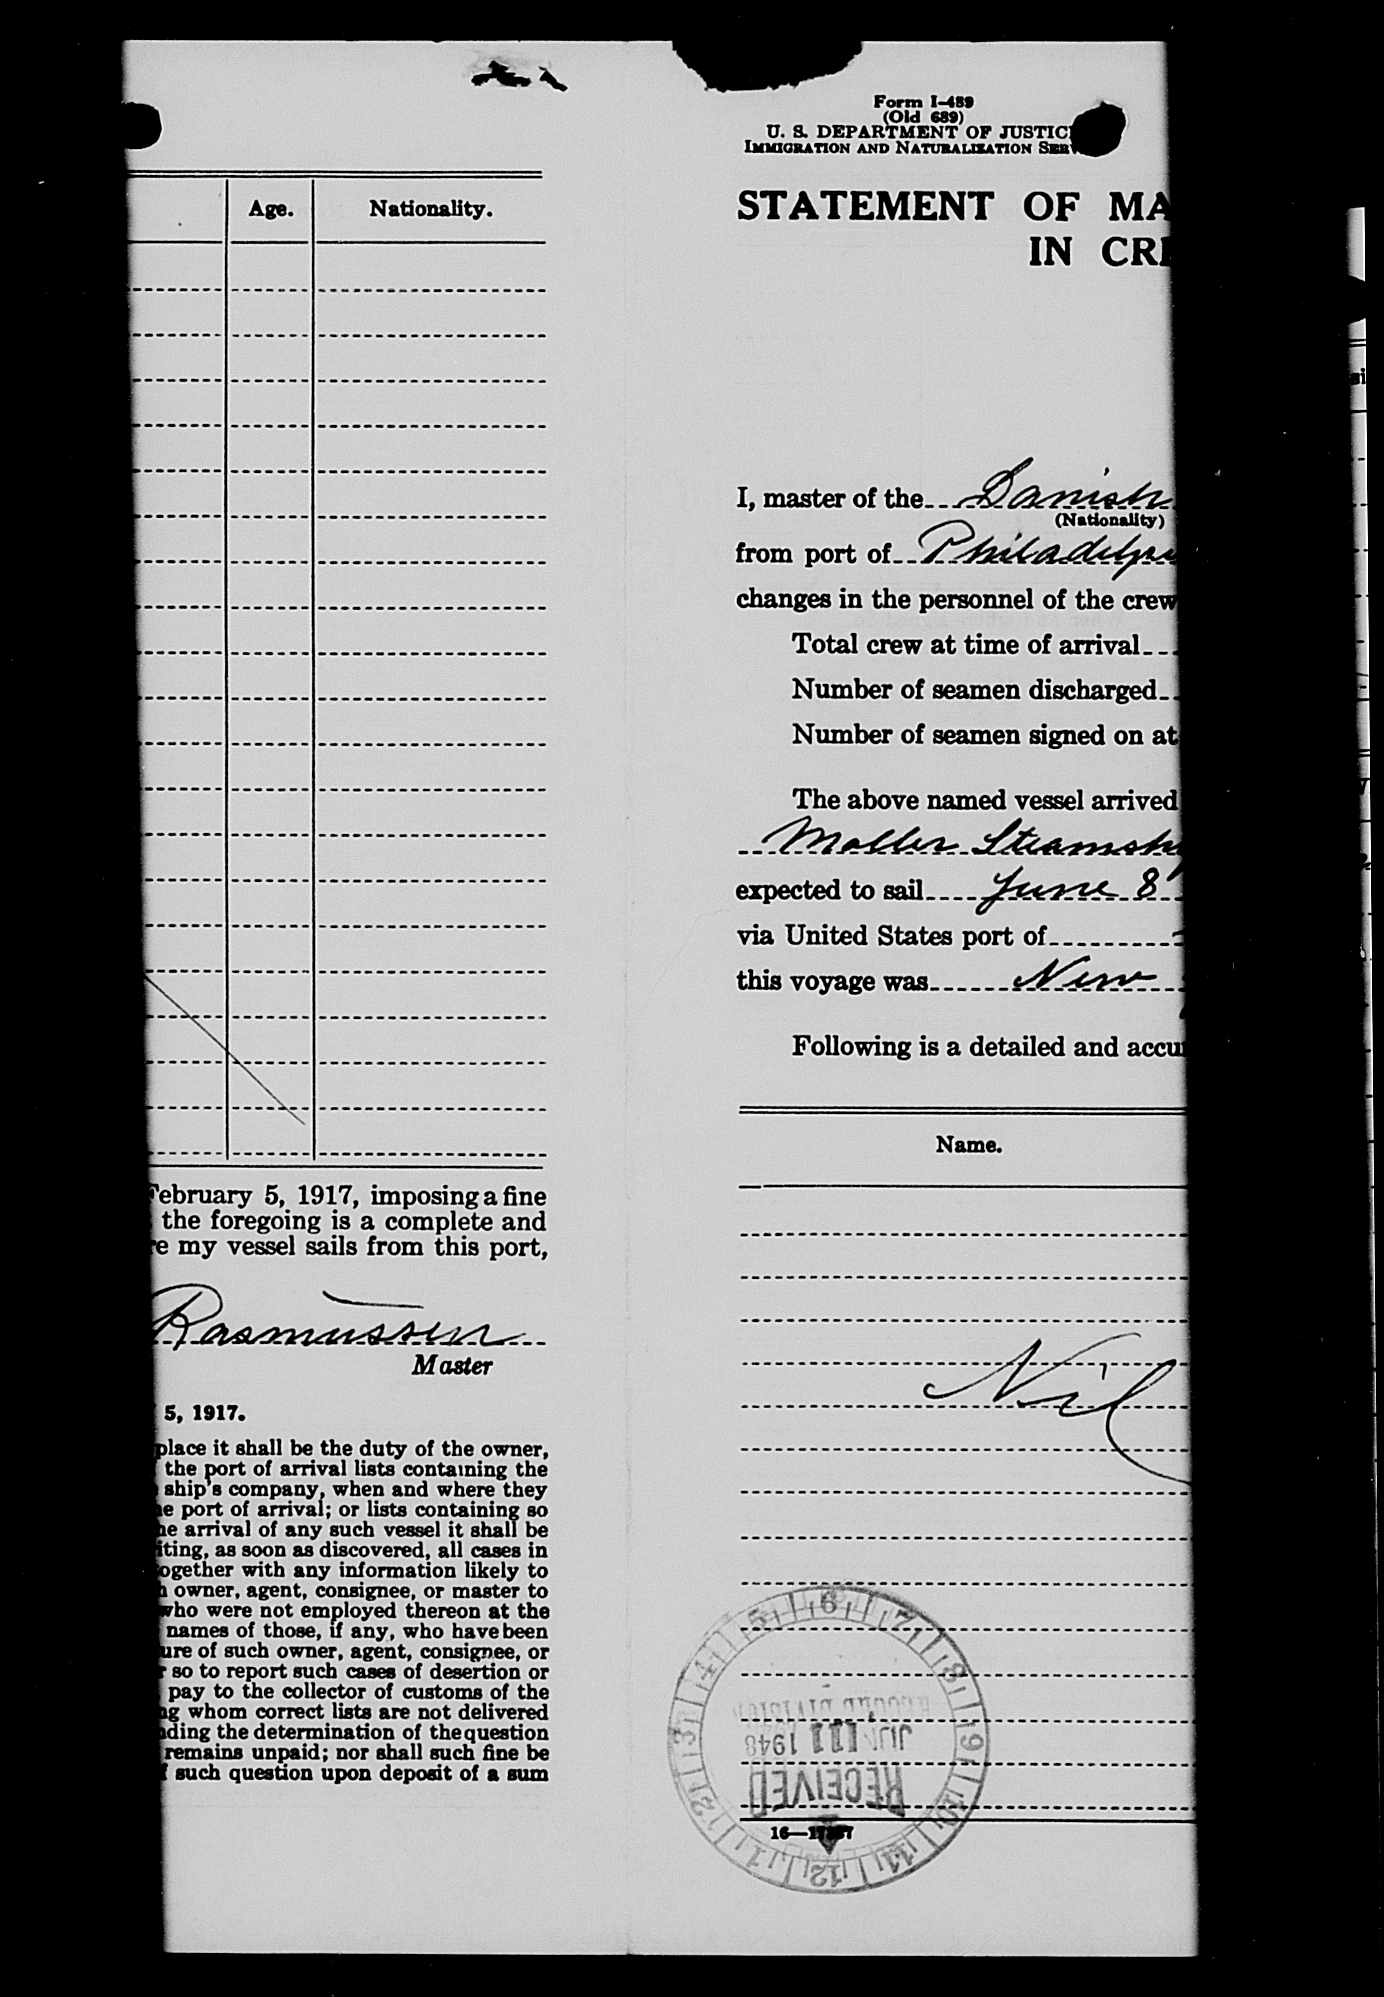 Age. Nationality.
February 5, 1917, imposing a fine
the foregoing is a complete and
re my vessel sails from this port,
Rasmussen
Master
5, 1917.
place it shall be the duty of the owner,
the port of arrival lists containing the
ship's company, when and where they
e port of arrival; or lists containing so
he arrival of any such vessel it shall be
iting, as soon as discovered, all cases in
ogether with any information likely to
owner, agent, consignee, or master to
who were not employed thereon at the
names of those, if any, who have been
ure of such owner, agent, consignee, or
r so to report such cases of desertion or
pay to the collector of customs of the
ng whom correct lists are not delivered
ding the determination of the question
remains unpaid; nor shall such fine be
f such question upon deposit of a sum
Form I-489
(Old 689)
U. S. DEPARTMENT OF JUSTIC
IMMIGRATION AND NATURALIZATION SERV
STATEMENT OF MA
IN CRE
I, master of the Danish
(Nationality)
from port of Philadelp
changes in the personnel of the crew
Total crew at time of arrival
Number of seamen discharged
Number of seamen signed on at
The above named vessel arrived
Moller Steamsh
expected to sail June 8
via United States port of
this voyage was New
Following is a detailed and accu
Name.
Nil
5 6 7 8 9 10 11 12 1 2 3 4
RECORD DIVISION
JUN 11 1948
RECEIVED